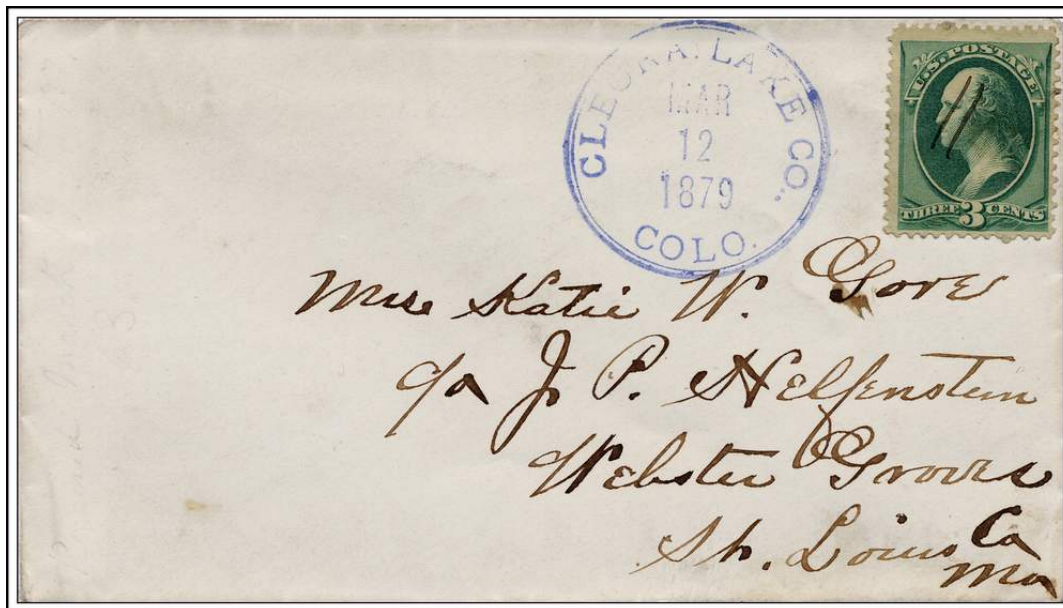 CLEORA, LAKE CO.,
MAR
12
1879
COLO.
U.S. POSTAGE
THREE 3 CENTS
Mrs Katie W. Gore
c/o J. P. Helfenstein
Webster Groves
St. Louis Co
Mo